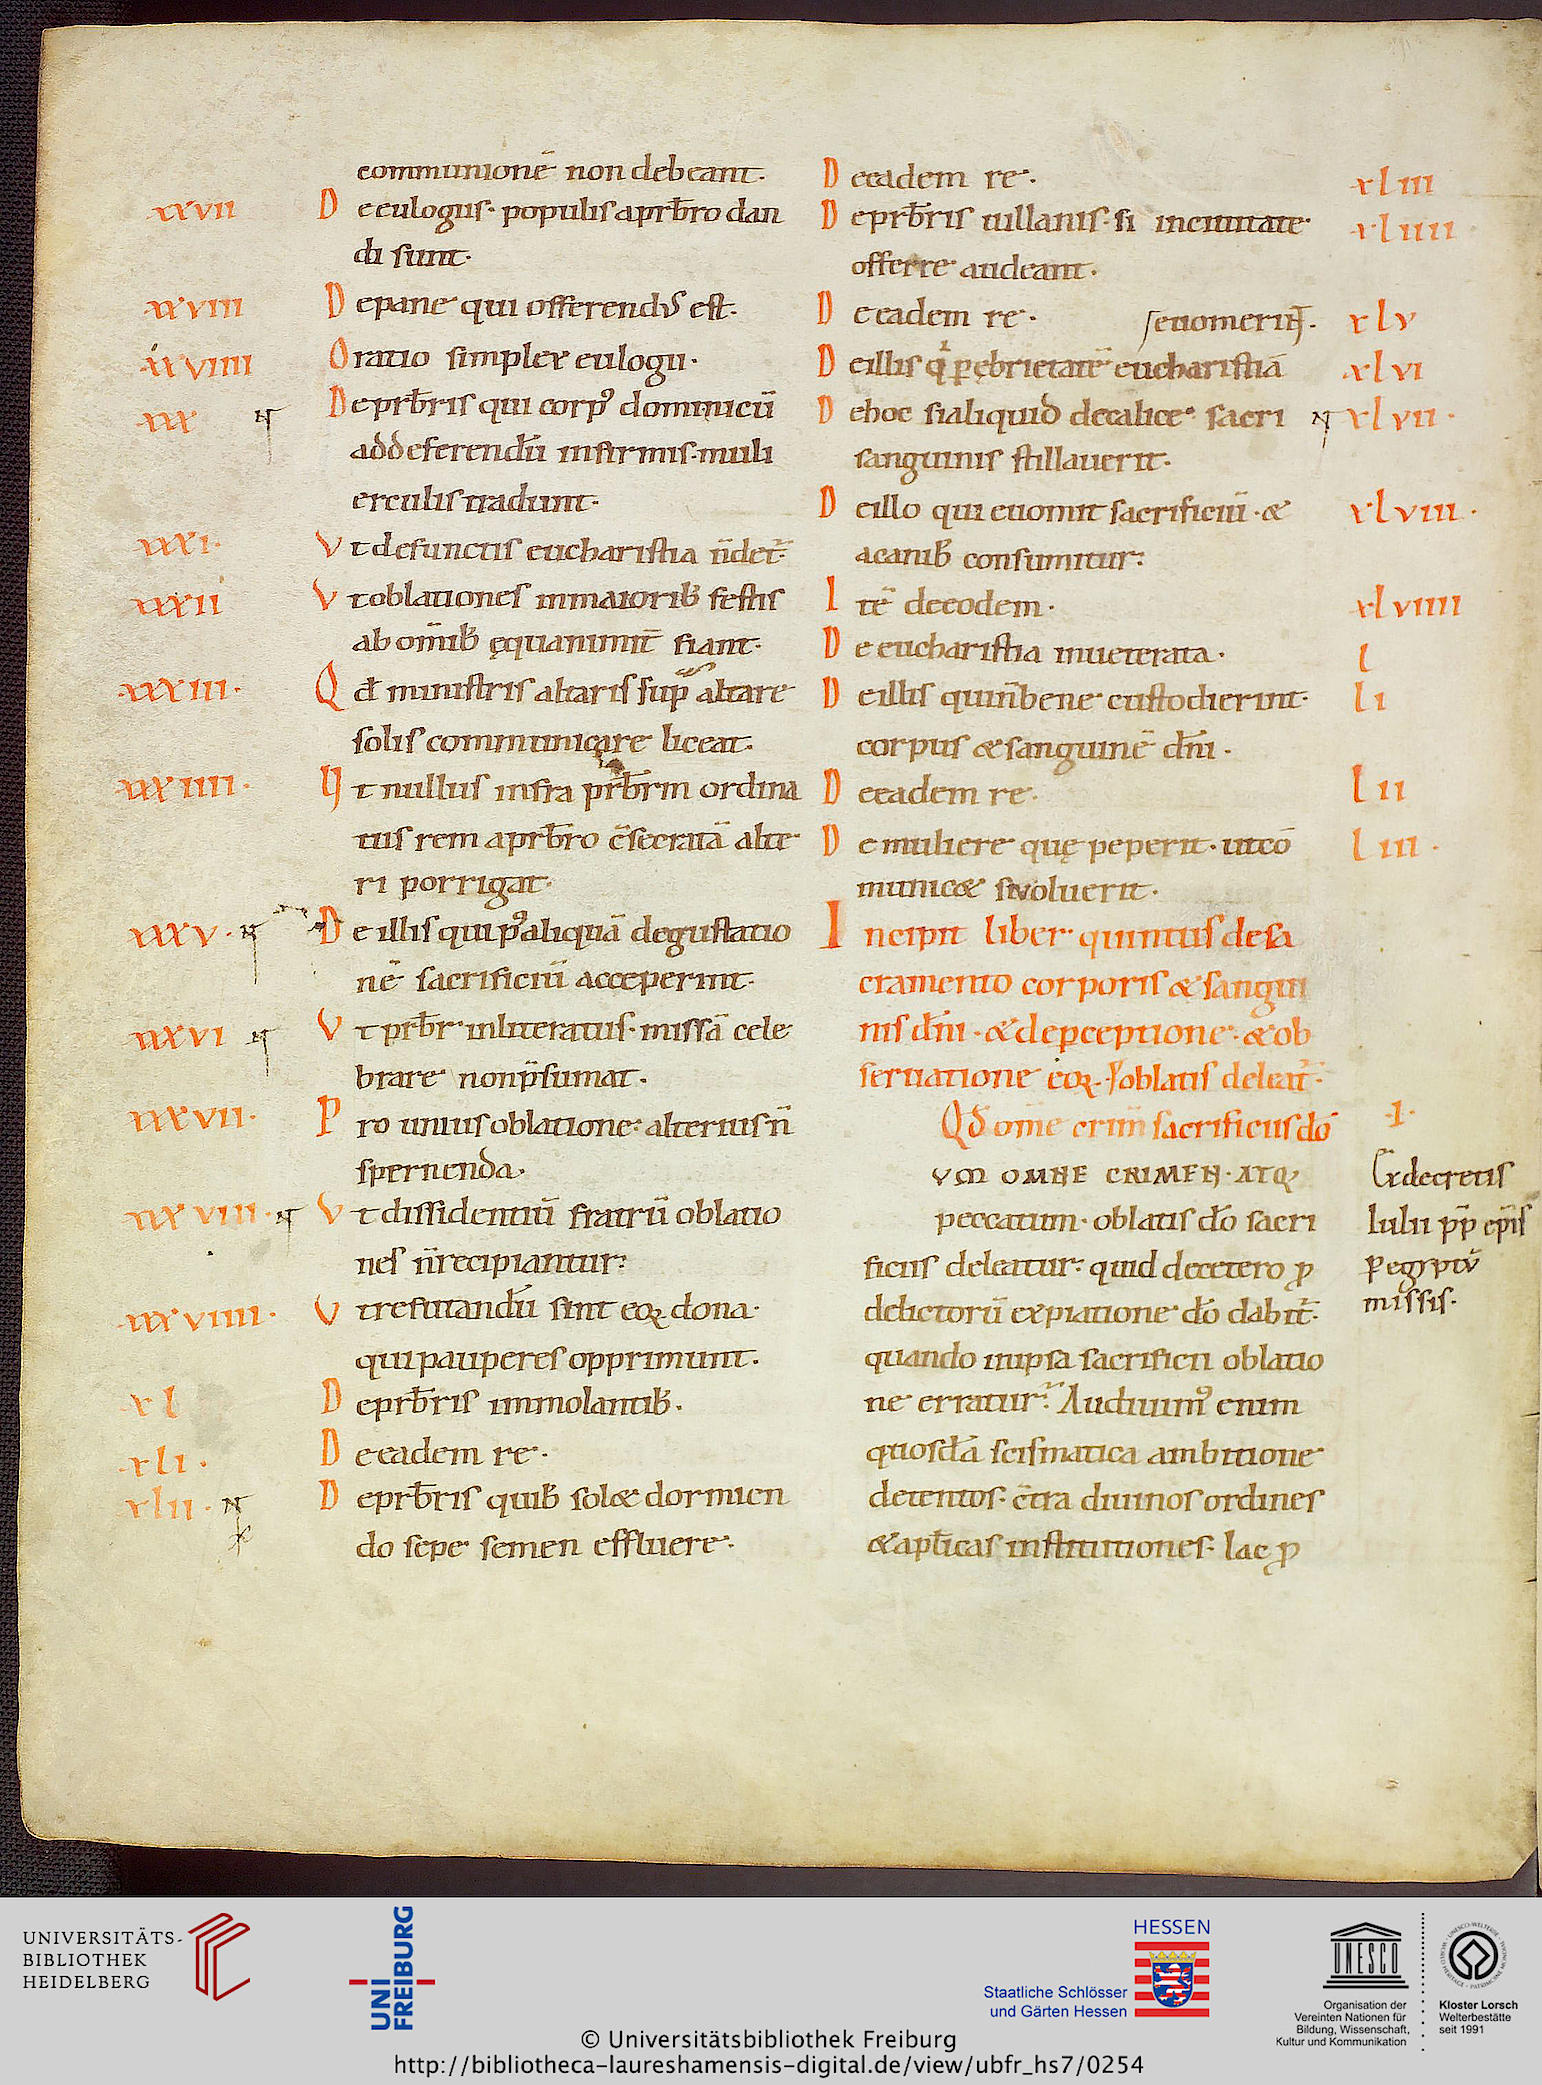 communionē non debeant.
xxvii D e eulogiis· populis a prƀro dan
di sunt·
xxviii D e pane qui offerendus est.
xxviiii O ratio simplex eulogii·
xxx D e prƀris qui corpꝰ dominicū
ad deferendū infirmis· muli
erculis tradunt·
xxxi· V t defunctis eucharistia ñ det᷒·
xxxii V t oblationes in maiorib; festis
ab om̄ib; ęquanimit̄ fiant·
xxxiii· Q đ ministris altaris sup̱ altare
solis communicare liceat·
xxxiiii· U t nullus infra prƀrm ordina
tus rem a prƀro c̄secratā alte
ri porrigat·
xxxv· D e illis qui pꝰ aliquā degustatio
nē sacrificiū acceperint·
xxxvi V t prƀr inliteratus· missā cele
brare non p̄sumat·
xxxvii· P ro unius oblatione· alterius ñ
spernenda·
xxxviii· V t dissidentiū fratrū oblatio
nes ñ recipiantur·
xxxviiii· V t refutandū sint eoꝝ dona·
qui pauperes opprimunt·
xl D e prƀris immolantib;·
xli· D e eadem re·
xlii· D e prƀris quib; solæ dormien
do sepe semen effluere·
D e eadem re· xliii
D e prƀris uillanis· si in ciuitate xliiii
offerre audeant·
D e eadem re· xlv
seuomerint̄·
D e illis q̇ ꝑ ębrietatē eucharistiā xlvi
D e hoc si aliquid de calice sacri xlvii·
sanguinis stillauerit·
D e illo qui euomit sacrificiū· & xlviii·
a canib; consumitur·
I tē de eodem· xlviiii
D e eucharistia inueterata· l
D e illis qui ñ bene custodierint· li
corpus & sanguinē dn̄i·
D e eadem re· lii
D e muliere quę peperit· ut cō liii·
municæ si uoluerit·
I ncipit liber quintus de sa
cramento corporis & sangui
nis dn̄i· & de ꝑceptione· & ob
seruatione eoꝝ·
Qđ om̄e crim̄ sacrificiis dō ·I·
oblatis deleat᷒·
VM OMNE CRIMEN· ATQ;
peccatum· oblatis dō sacri
ficiis deleatur· quid de cetero ꝓ
delictorū expiatione dō dabit᷒·
quando in ipsa sacrificii oblatio
ne erratur? Audiuimꝰ enim
quosdā scismatica ambitione
detentos· c̄tra diuinos ordines
& apłicas institutiones· lac ꝓ
Ex decretis
Iulii pp̄ ep̄is
ꝑ egyptū
missis·
UNIVERSITÄTS-
BIBLIOTHEK
HEIDELBERG
UNI
FREIBURG
HESSEN
Staatliche Schlösser
und Gärten Hessen
UNESCO
Organisation der
Vereinten Nationen für
Bildung, Wissenschaft,
Kultur und Kommunikation
Kloster Lorsch
Welterbestätte
seit 1991
© Universitätsbibliothek Freiburg
http://bibliotheca-laureshamensis-digital.de/view/ubfr_hs7/0254